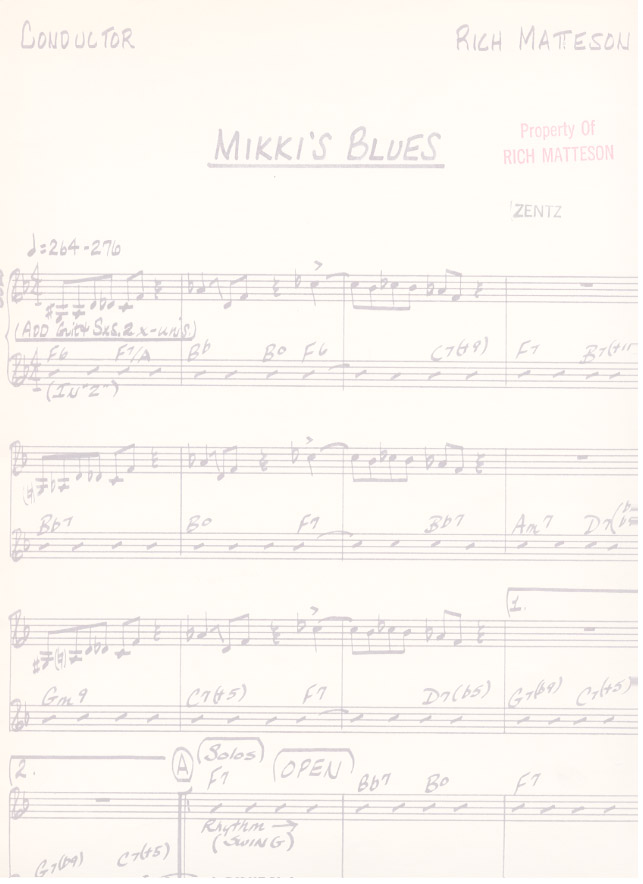 CONDUCTOR RICH MATTESON
MIKKI'S BLUES
Property Of
RICH MATTESON
ZENTZ
♩=264-276
(ADD Sxs. 2x-unis.)
F6 F7/A Bb Bo F6 C7(#9) F7 B7(#11
(IN "2")
Bb7 Bo F7 Bb7 Am7 D7
1.
Gm9 C7(#5) F7 D7(b5) G7(b9) C7(#5)
2. A (Solos) (OPEN)
F7 Bb7 Bo F7
Rhythm →
(SWING)
G7(b9) C7(#5)